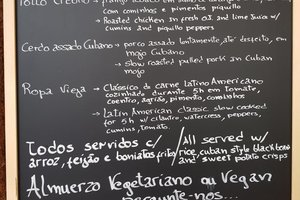 com cominhos e pimentos piquillo
→ Roasted chicken in fresh oj and lime juice w/
cumins and piquillo peppers
Cerdo assado Cubano → porco assado lentamente, até desfeito, em
mojo Cubano
→ Slow roasted pulled pork in Cuban
mojo
Ropa Vieja → Clássico de carne latino Americano
cozinhado durante 5h em tomate,
coentro, agrião, pimento, cominhos
→ Latin American classic slow cooked
for 5h w/ cilantro, watercress, peppers,
cumins, tomato.
Todos servidos c/ / All served w/
arroz, feijão e boniatos fritos / rice, cuban style black beans
and sweet potato crisps
Almuerzo Vegetariano ou Vegan
pergunte-nos...